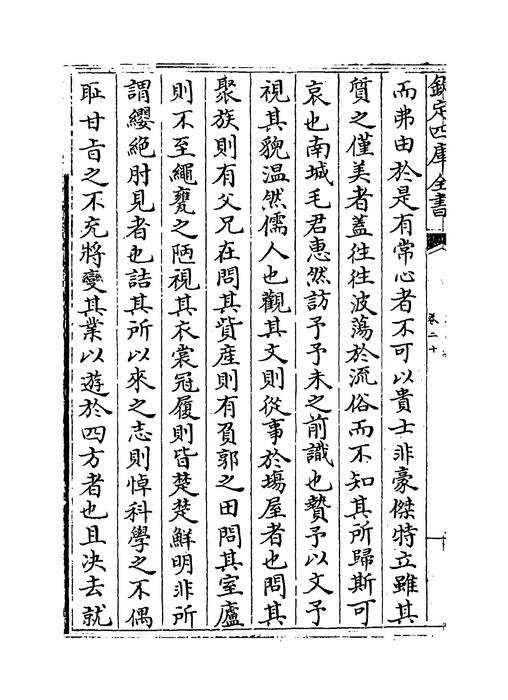 欽定四庫全書
卷二十
而弗由於是有常心者不可以貴士非豪傑特立雖其
質之僅美者蓋往往波蕩於流俗而不知其所歸斯可
哀也南城毛君惠然訪予予未之前識也贄予以文予
視其貌温然儒人也觀其文則從事於場屋者也問其
聚族則有父兄在問其貲産則有負郭之田問其室廬
則不至繩甕之陋視其衣裳冠履則皆楚楚鮮明非所
謂纓絶肘見者也詰其所以來之志則悼科學之不偶
耻甘旨之不充將變其業以遊於四方者也且決去就